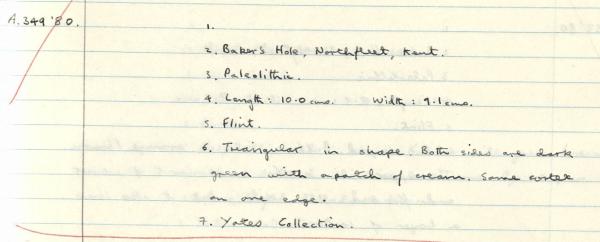 A.349 '80.
1.
2. Baker's Hole, Northfleet, Kent.
3. Paleolithic.
4. Length: 10.0 cms. Width: 9.1 cms.
5. Flint.
6. Triangular in shape. Both sides are dark
green with a patch of cream. Some cortex
on one edge.
7. Yates Collection.